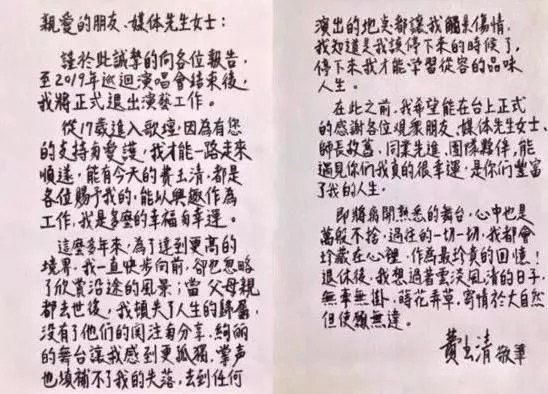 親愛的朋友、媒体先生女士：
謹於此誠摯的向各位報告，
至2019年巡迴演唱會結束後，
我將正式退出演藝工作。
從17歲進入歌壇，因為有您
的支持與愛護，我才能一路走來
順遂，能有今天的費玉清，都是
各位賜予我的，能以興趣作為
工作，我是多麼的幸福與幸運。
這麼多年來，為了達到更高的
境界，我一直快步向前，卻也忽略
了欣賞沿途的風景；當父母親
都去世後，我頓失了人生的歸屬，
沒有了他們的関注與分享，絢麗
的舞台讓我感到更孤獨，掌声
也填補不了我的失落，去到任何
演出的地点都讓我觸景傷情，
我知道是我該停下來的時候了，
停下來我才能学習從容的品味
人生。
在此之前，我希望能在台上正式
的感謝各位观衆朋友、媒体先生女士、
師長故舊、同業先進、團隊夥伴，能
遇見你們我真的很幸運，是你們豐富
了我的人生。
即將離開熟悉的舞台，心中也是
萬般不捨，過往的一切一切，我都會
珍藏在心裡，作為最珍貴的回憶！
退休後，我想過著雲淡風清的日子，
無牽無掛，蒔花弄草，寄情於大自然
但使願無違。
費玉清 敬筆